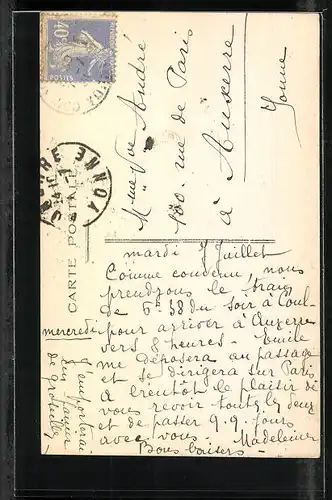 40c
POSTES
CARTE POSTALE
AUXERRE
YONNE
Mme Vve André
180 rue de Paris
à Auxerre
Yonne
mardi 7 Juillet
Comme convenu, nous
prendrons le train
de 6h 38 du soir à Coul-
mercredi
pour arriver à Auxerre
vers 8 heures - Emile
me déposera au passage
et se dirigera sur Paris
A bientôt le plaisir de
vous revoir toutes les deux
et de passer q.q. jours
avec vous. Madeleine
Bons baisers -
J'emporterai
un panier
de